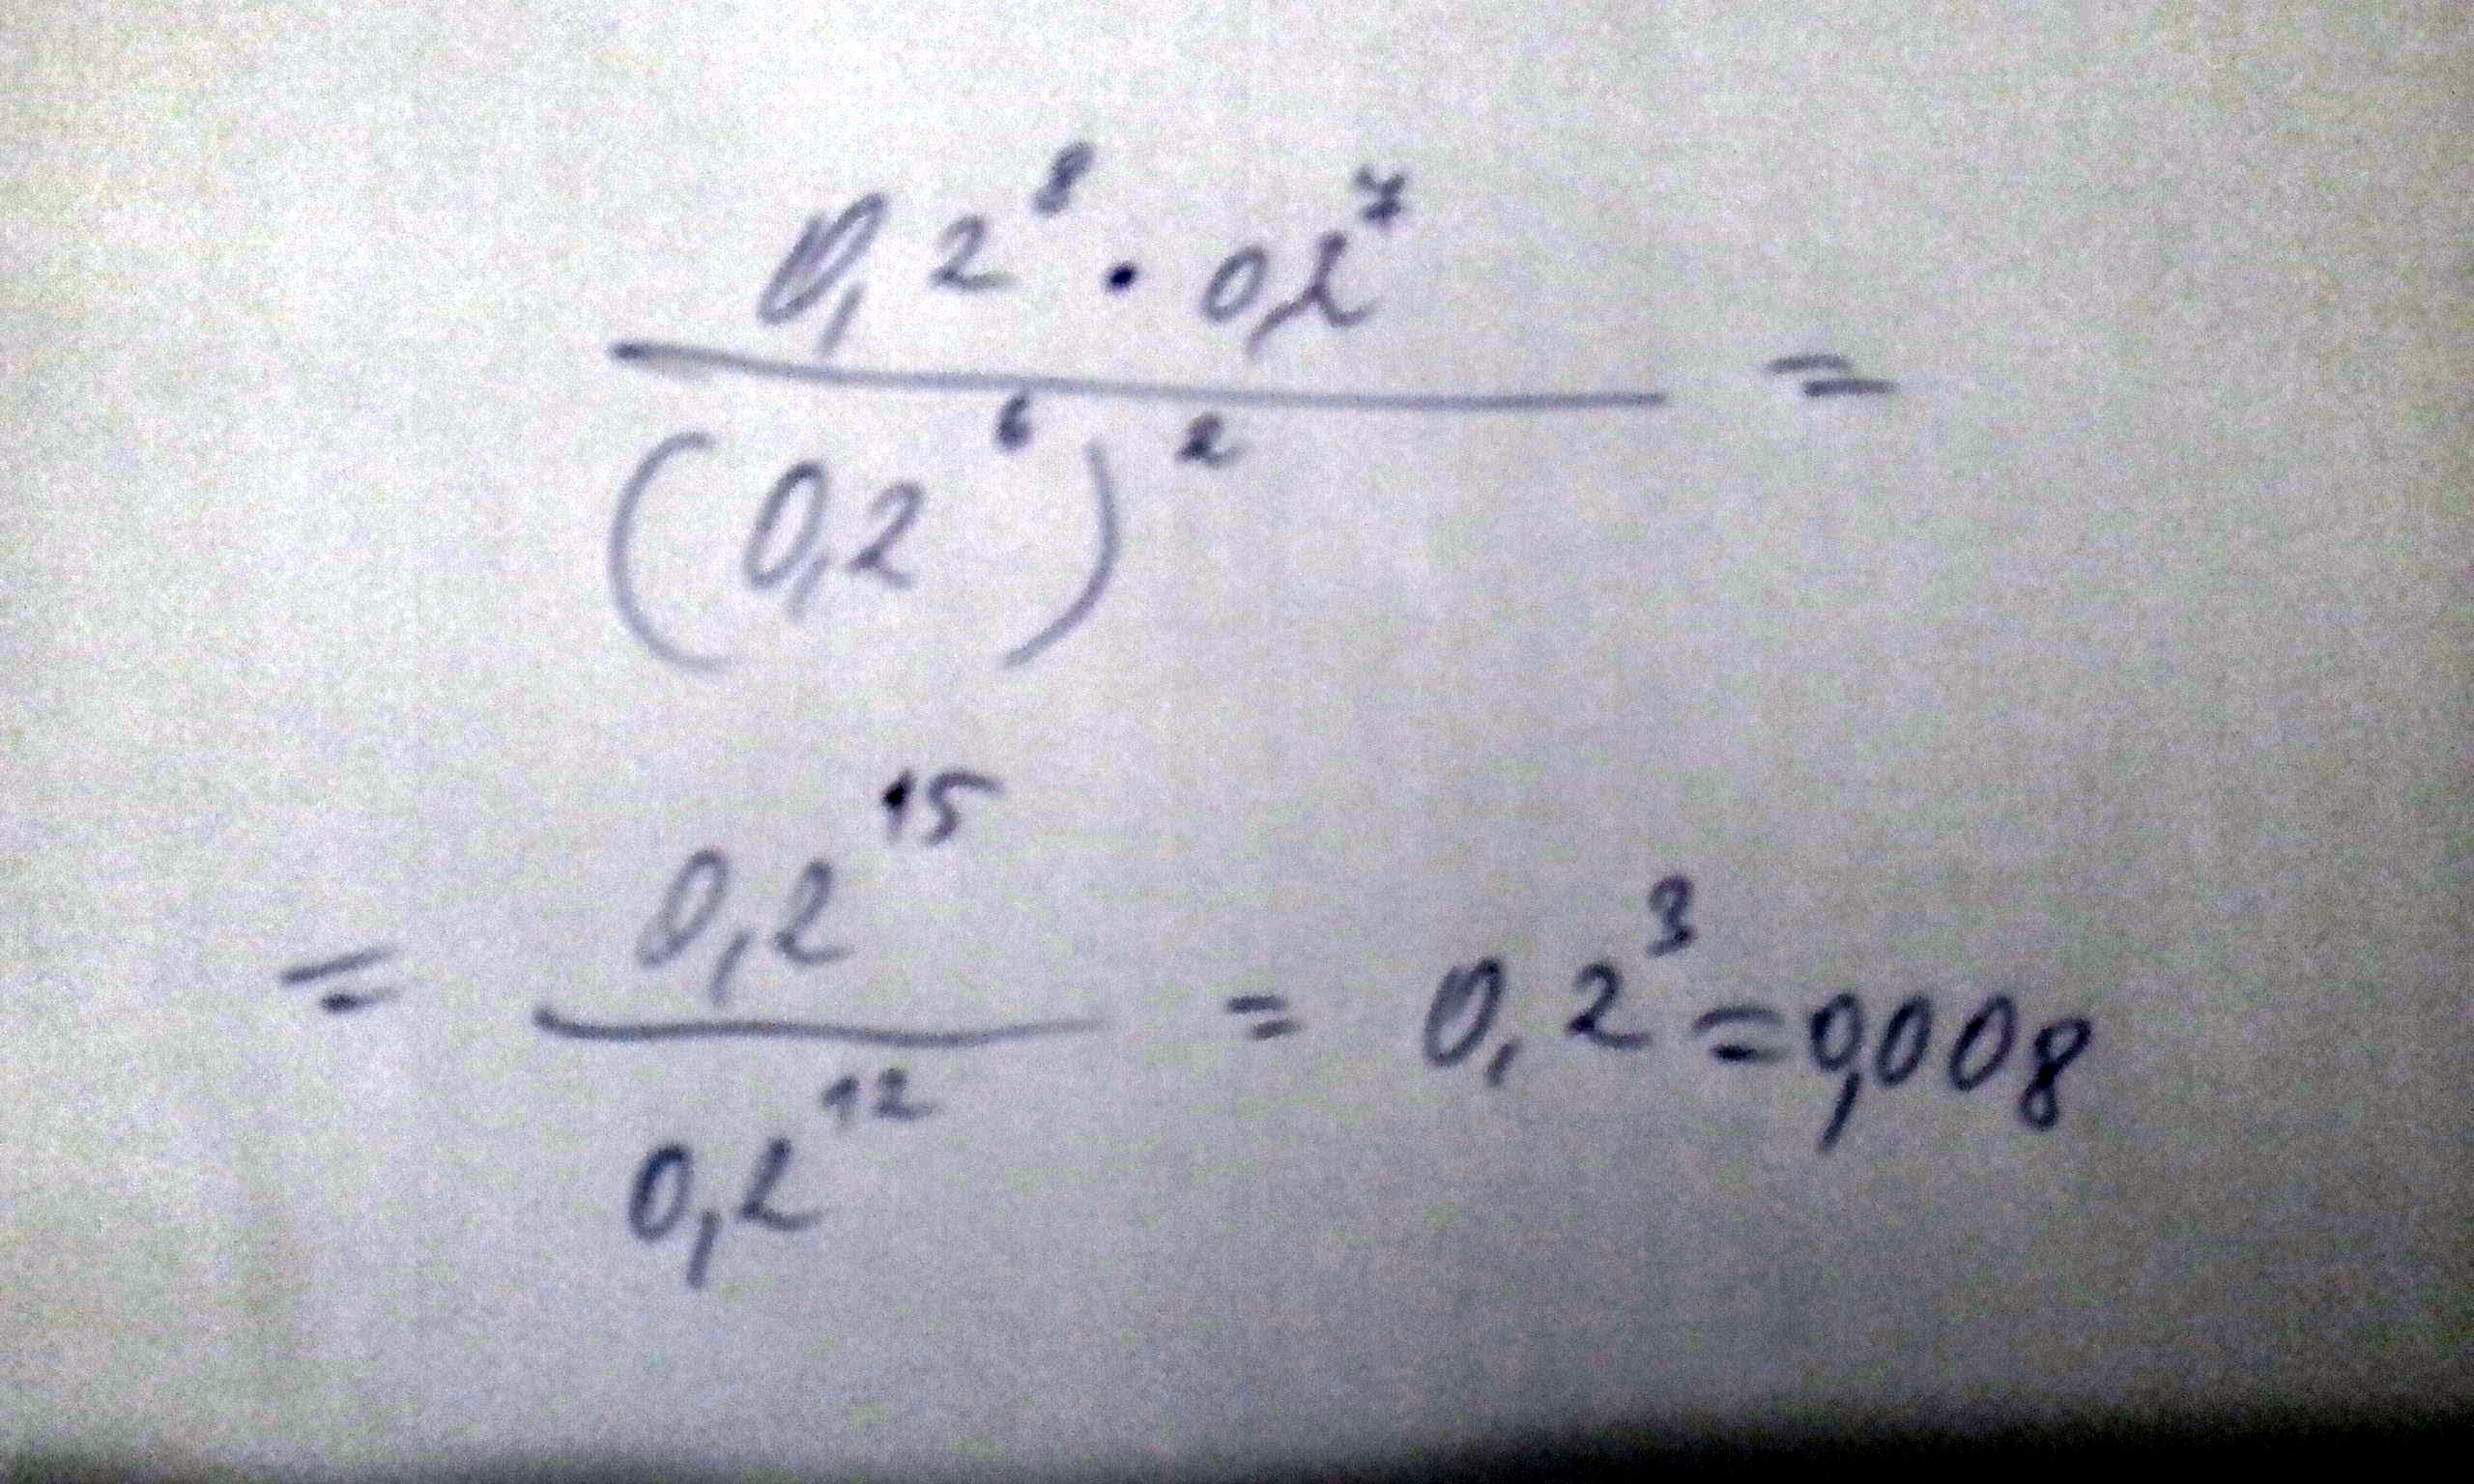 0,2⁸ · 0,2⁷
(0,2⁶)² =
= 0,2¹⁵
0,2¹² = 0,2³ = 0,008